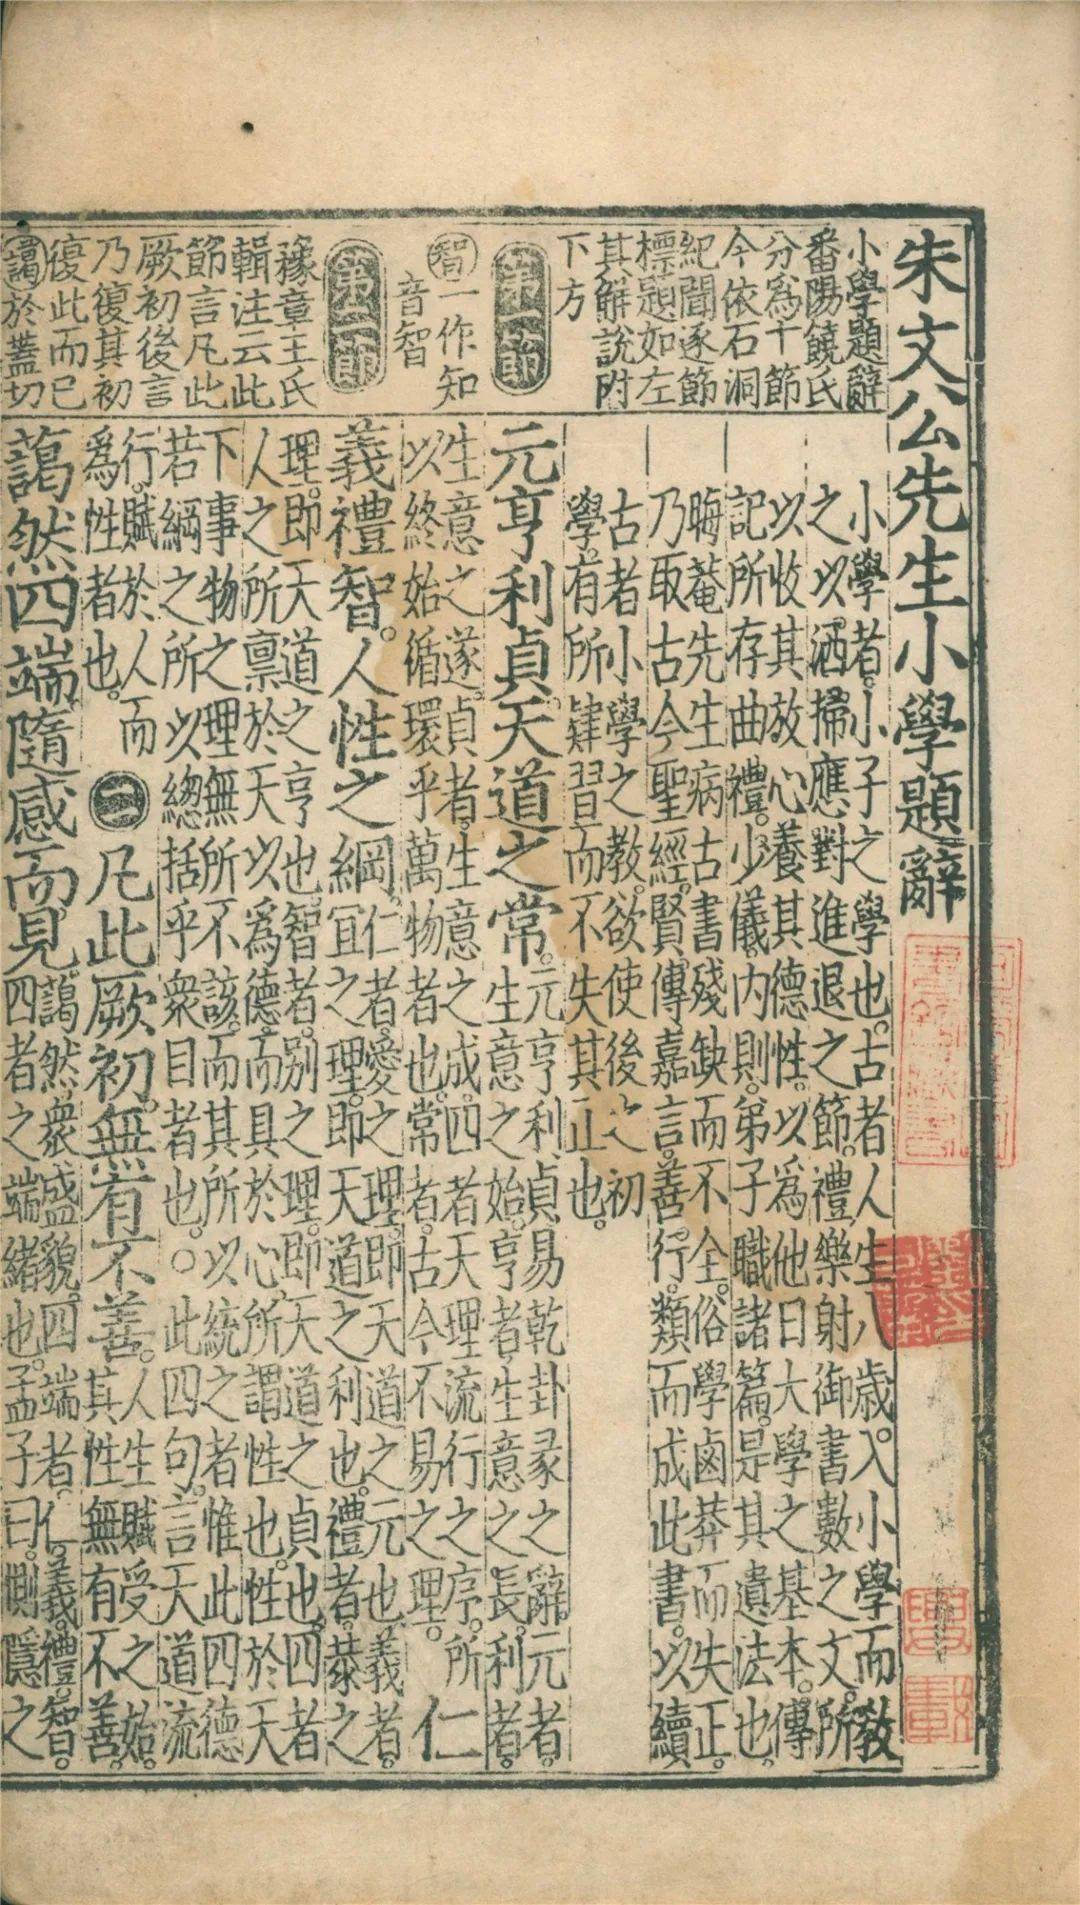 朱文公先生小學題辭
小學題辭
番陽饒氏
分爲十節
今依石洞
紀聞逐節
標題如左
其解說附
下方
第一節
智一作知
音智
第二節
豫章王氏
輯注云此
節言凡此
厥初後言
乃復其初
復此而已
藹於蓋切
小學者。小子之學也。古者人生八歲。入小學而教
之以洒掃應對進退之節。禮樂射御書數之文。所
以收其放心養其德性。以爲他日大學之基本。傳
記所存曲禮。少儀。內則。弟子職諸篇。是其遺法也。
晦菴先生病古書殘缺而不全。俗學鹵莽而失正。
乃取古今聖經。賢傳嘉言。善行。類而成此書。以續
古者小學之教。欲使後之初
學。有所肄習而不失其正也。
元亨利貞。天道之常。
元亨利貞易乾卦彖之辭。元者。
生意之始。亨者生意之長。利者。
生意之遂。貞者。生意之成。四者天理流行之序。所
以終始循環乎萬物者也。常者。古今不易之理。
仁
義禮智。人性之綱。
仁者。愛之理。即天道之元也。義者。
宜之理。即天道之利也。禮者。恭之
理。即天道之亨也。智者。別之理。即天道之貞也。四者
人之所稟於天以爲德。而具於心。所謂性也。性於天
下事物之理無所不該。而其所以統之者惟此四德
若綱之所以總括乎衆目者也。○此四句。言天道流
行。賦於人而
爲性者也。
二
凡此厥初。無有不善。
人生賦受之始。
其性無有不善。
藹然四端隨感而見
藹然衆盛貌。四端者。仁。義。禮。智。
四者之端緒也。孟子曰。惻隱之